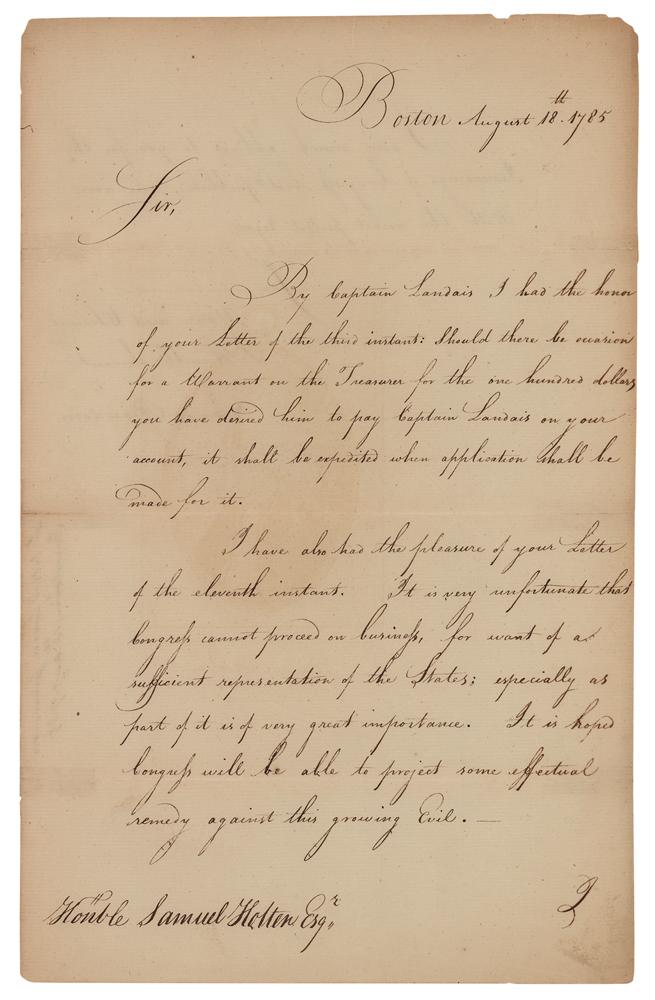 Boston August 18th. 1785
Sir,
By Captain Landais I had the honor
of your Letter of the third instant: Should there be occasion
for a Warrant on the Treasurer for the one hundred dollars
you have desired him to pay Captain Landais on your
account, it shall be expedited when application shall be
made for it.
I have also had the pleasure of your Letter
of the eleventh instant. It is very unfortunate that
Congress cannot proceed on business, for want of a
sufficient representation of the States; especially as
part of it is of very great importance. It is hoped
Congress will be able to project some effectual
remedy against this growing Evil. —
Honble Samuel Holten Esqr. I